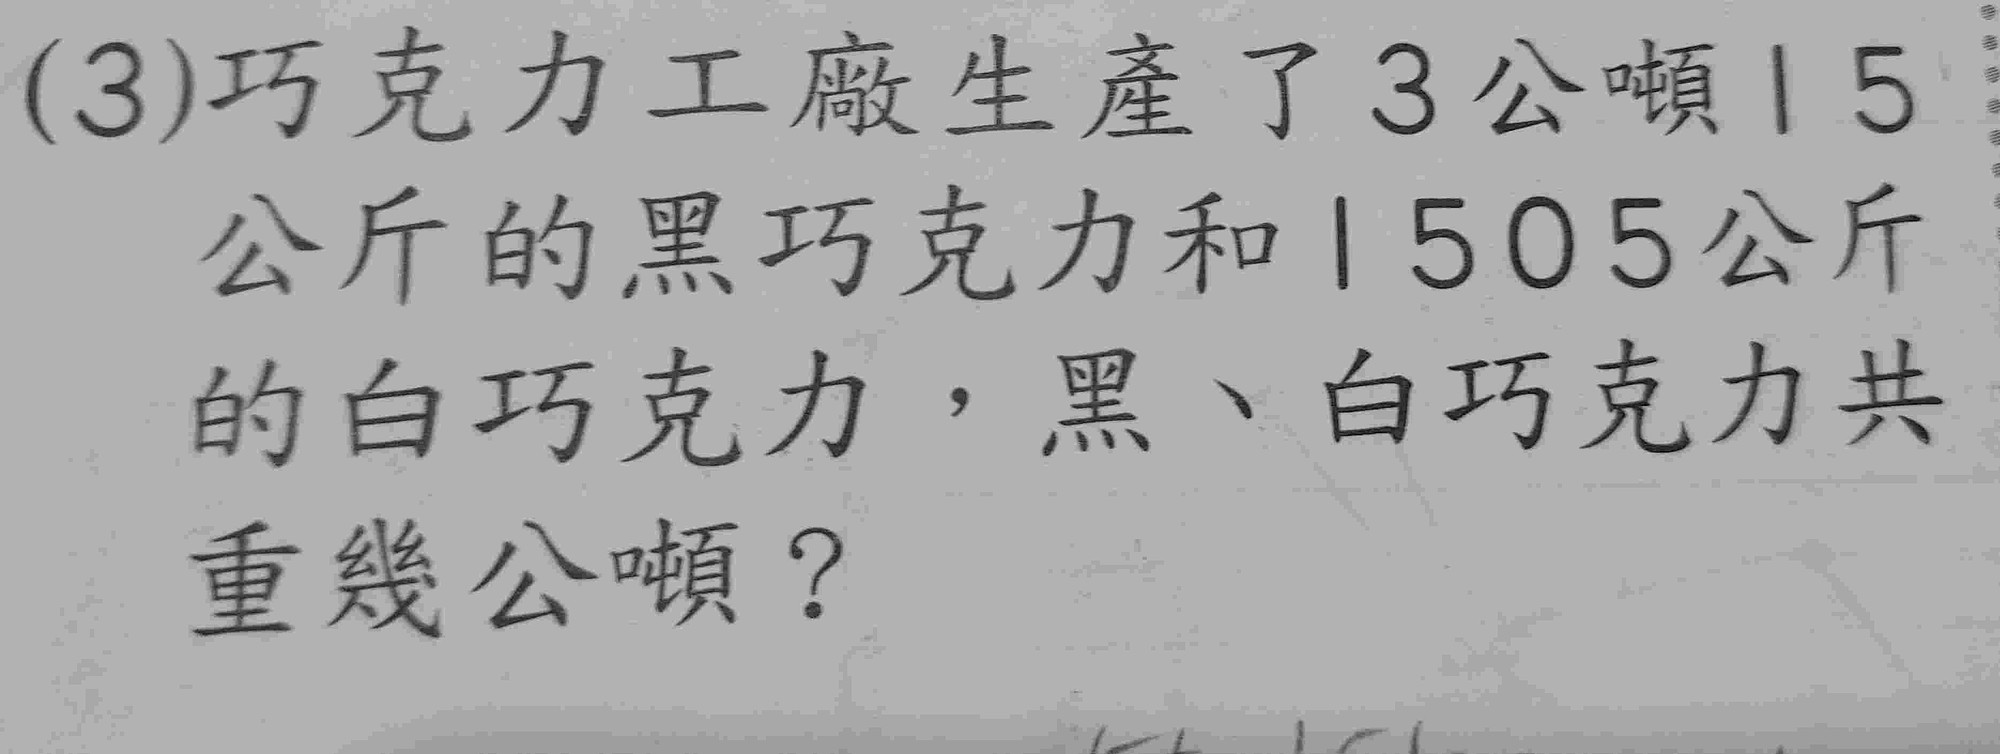 (3)巧克力工廠生產了3公噸15
公斤的黑巧克力和1505公斤
的白巧克力，黑、白巧克力共
重幾公噸？